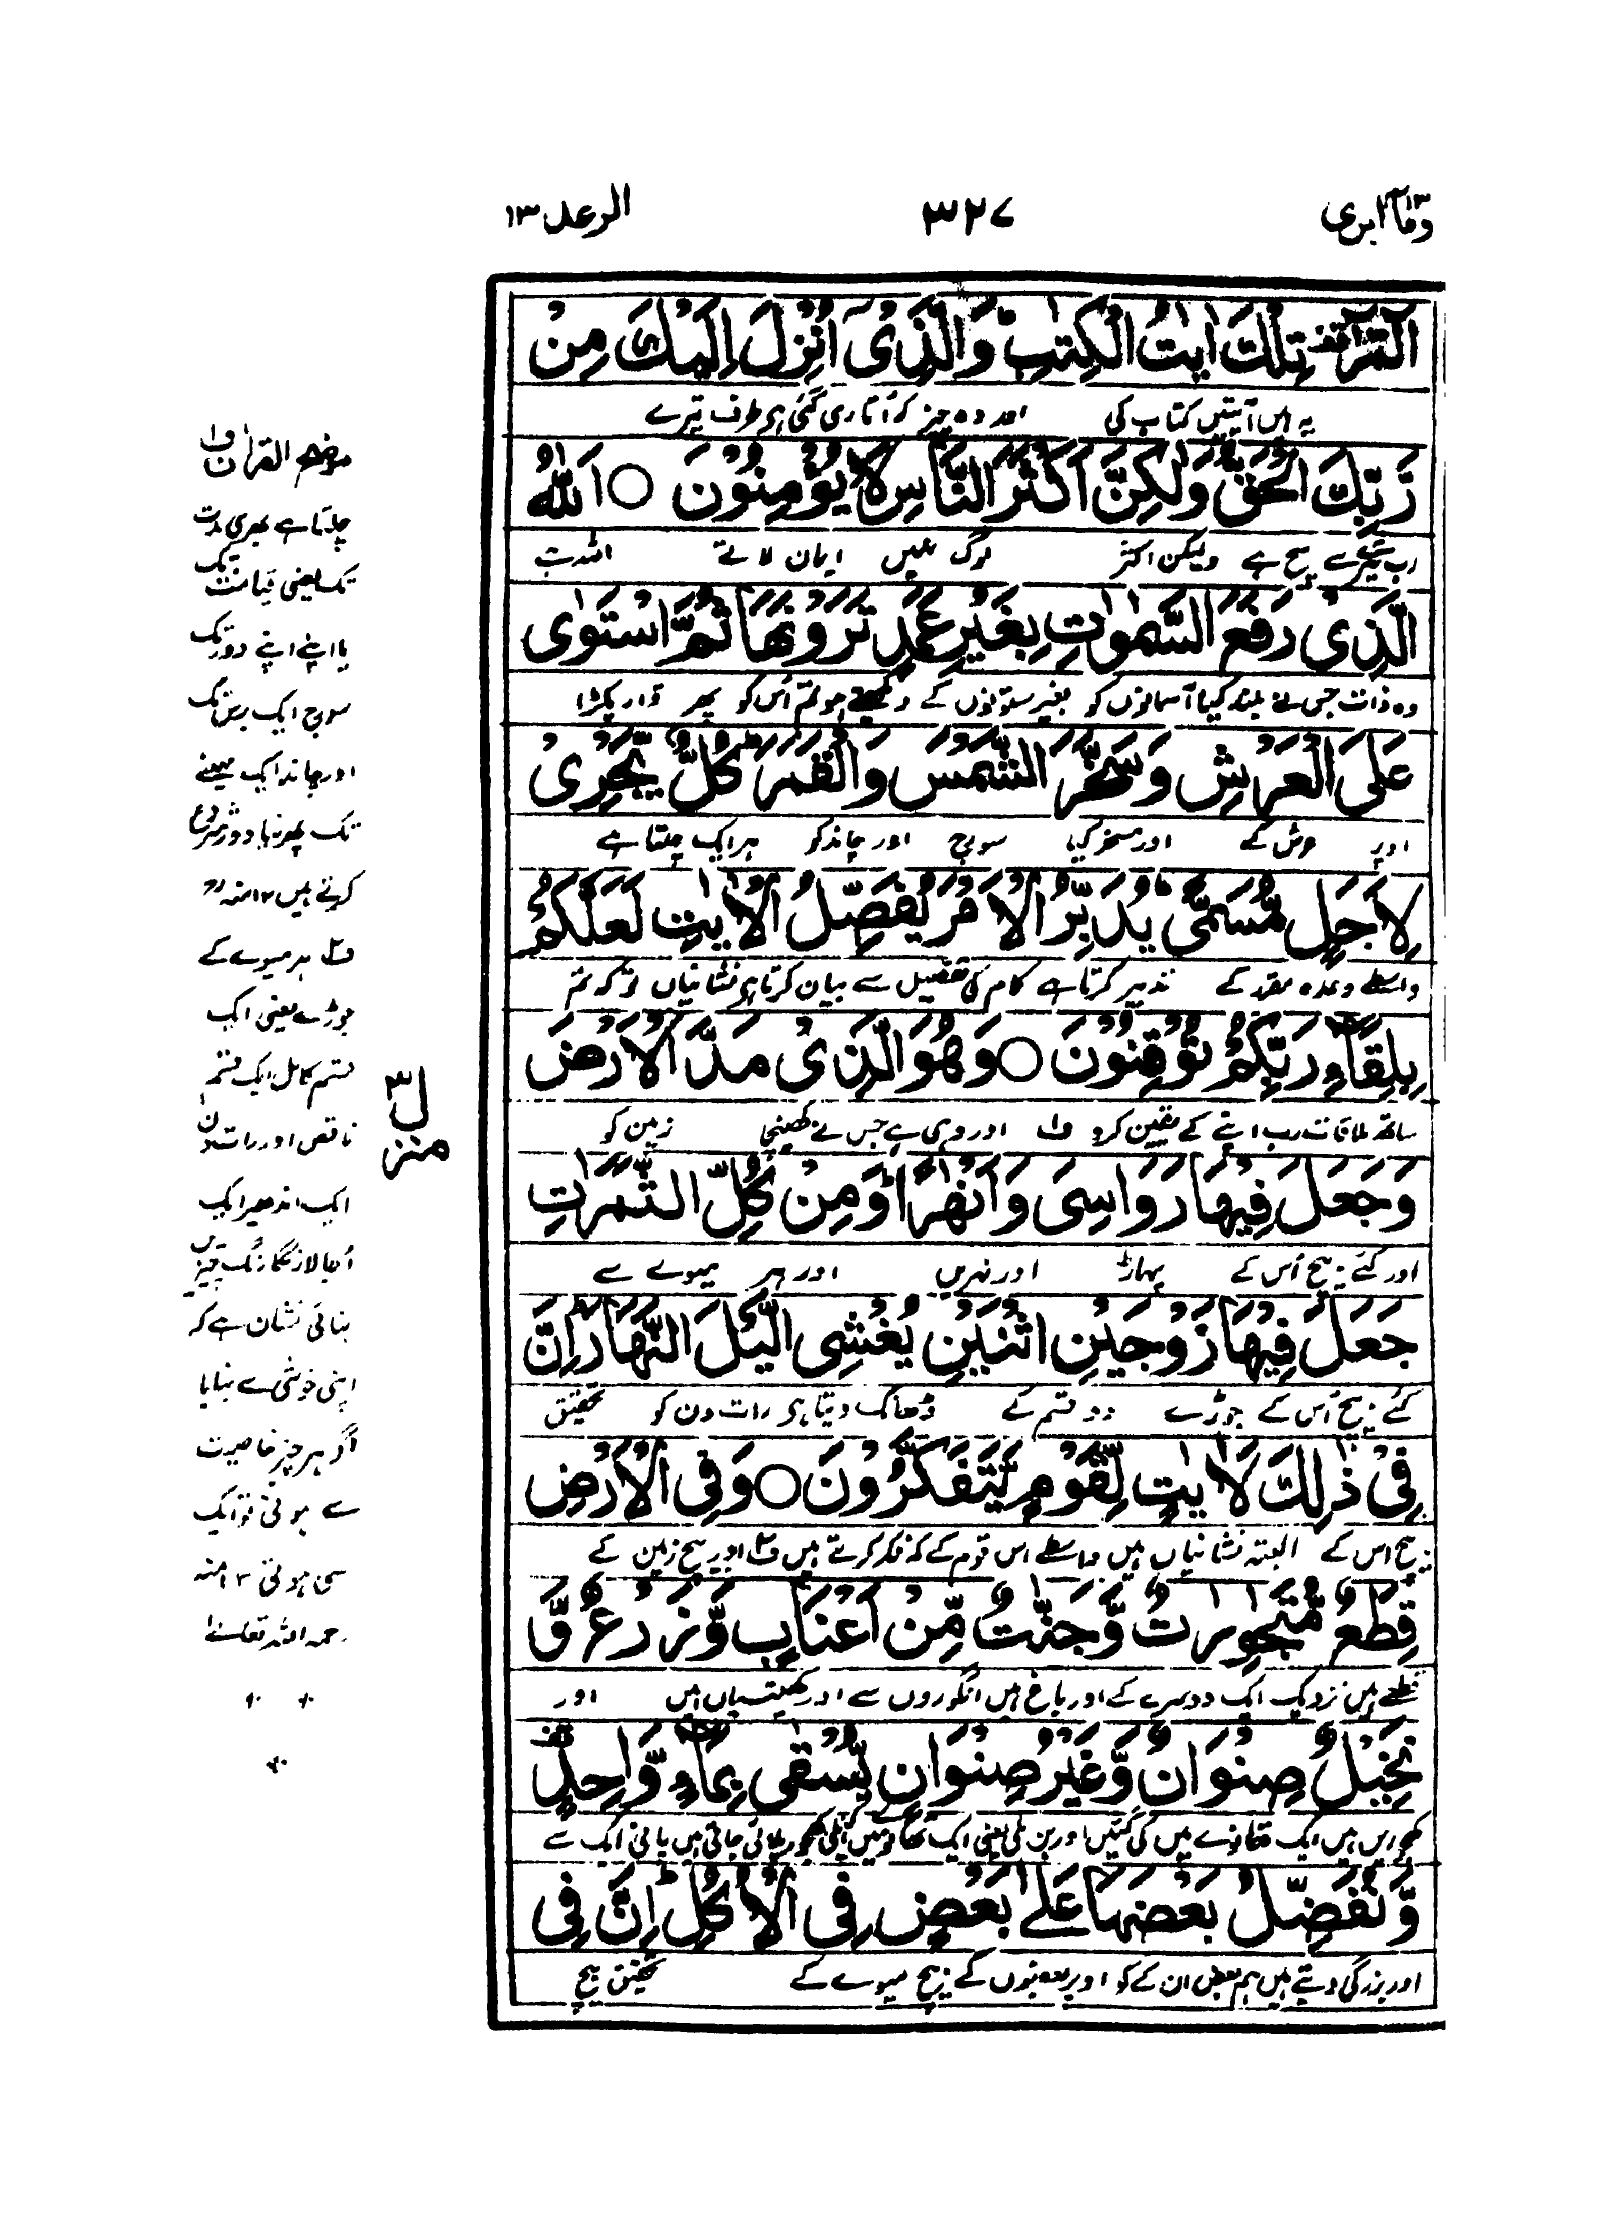 وما ابری ۱۳
۳۲۷
الرعد ۱۳
الٓمّٓرٰ تِلْكَ اٰیٰتُ الْكِتٰبِ وَالَّذِیْۤ اُنْزِلَ اِلَیْكَ مِنْ
یہ ہیں آیتیں کتاب کی اور وہ چیز کہ اتاری گئی ہے طرف تیرے
رَّبِّكَ الْحَقُّ وَلٰكِنَّ اَكْثَرَ النَّاسِ لَا یُؤْمِنُوْنَ ○ اَللّٰهُ
رب تیرے سے سچ ہے ولیکن اکثر لوگ نہیں ایمان لاتے اللہ ہے
الَّذِیْ رَفَعَ السَّمٰوٰتِ بِغَیْرِ عَمَدٍ تَرَوْنَهَا ثُمَّ اسْتَوٰی
وہ ذات جس نے بلند کیا آسمانوں کو بغیر ستونوں کے دیکھتے ہو تم اُس کو پھر قرار پکڑا
عَلَی الْعَرْشِ وَسَخَّرَ الشَّمْسَ وَالْقَمَرَ كُلٌّ یَّجْرِیْ
اوپر عرش کے اور مسخر کیا سورج اور چاند کو ہر ایک چلتا ہے
لِاَجَلٍ مُّسَمًّی یُدَبِّرُ الْاَمْرَ یُفَصِّلُ الْاٰیٰتِ لَعَلَّكُمْ
واسطے وعدہ مقرر کے تدبیر کرتا ہے کام کی تفصیل سے بیان کرتا ہے نشانیاں تو کہ تم
بِلِقَآءِ رَبِّكُمْ تُوْقِنُوْنَ ○ وَهُوَ الَّذِیْ مَدَّ الْاَرْضَ
ساتھ ملاقات رب اپنے کے یقین کرو ف۱ اور وہی ہے جس نے کھینچی زمین کو
وَجَعَلَ فِیْهَا رَوَاسِیَ وَاَنْهٰرًا وَمِنْ كُلِّ الثَّمَرٰتِ
اور کئے بیچ اُس کے پہاڑ اور نہریں اور ہر میوے سے
جَعَلَ فِیْهَا زَوْجَیْنِ اثْنَیْنِ یُغْشِی الَّیْلَ النَّهَارَ اِنَّ
کئے بیچ اُس کے جوڑے دو قسم کے ڈھانک دیتا ہے رات دن کو تحقیق
فِیْ ذٰلِكَ لَاٰیٰتٍ لِّقَوْمٍ یَّتَفَكَّرُوْنَ ○ وَفِی الْاَرْضِ
بیچ اس کے البتہ نشانیاں ہیں واسطے اس قوم کے کہ فکر کرتے ہیں ف۲ اور بیچ زمین کے
قِطَعٌ مُّتَجٰوِرٰتٌ وَّجَنّٰتٌ مِّنْ اَعْنَابٍ وَّزَرْعٌ وَّ
قطعے ہیں نزدیک ایک دوسرے کے اور باغ ہیں انگوروں سے اور کھیتیاں ہیں اور
نَخِیْلٌ صِنْوَانٌ وَّغَیْرُ صِنْوَانٍ یُّسْقٰی بِمَآءٍ وَّاحِدٍ
ہیں ایک میں کی اور بن ملی یعنی ایک پلائی جاتی ہیں پانی ایک سے
وَّنُفَضِّلُ بَعْضَهَا عَلٰی بَعْضٍ فِی الْاُكُلِ اِنَّ فِیْ
اور بزرگی دیتے ہیں ہم بعض ان کے کو اوپر بعضوں کے بیچ میوے کے تحقیق بیچ
موضح القراٰن ف۱
چلتا ہے ٹھہری مدت
تک یعنی قیامت تک
یا اپنے اپنے دور تک
سورج ایک برس تک
اور چاند ایک مہینے
تک پھر نیا دور شروع
کرتے ہیں ۱۲ منہ رح
ف۲ ہر میوے کے
جوڑے یعنی ایک
قسم کامل ایک قسم
ناقص اور رات دن
ایک اندھیرا ایک
اُجالا رنگا رنگ چیزیں
بنائی نشان ہے کہ
اپنی خوشی سے بنایا
اگر ہر چیز خاصیت
سے ہوتی تو ایک
سی ہوتی ۱۲ منہ
رحمہ اللہ تعالےٰ
منزل ۳